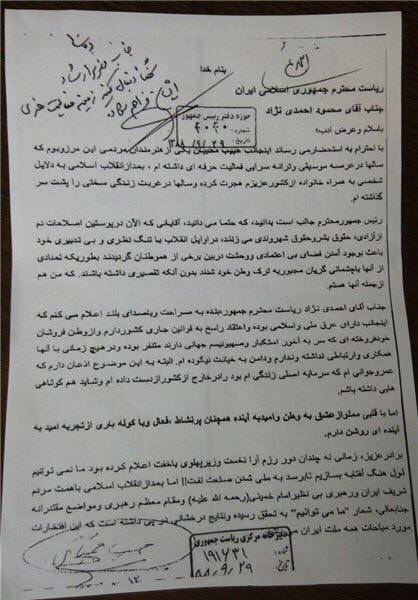 بنام خدا
ریاست محترم جمهوری اسلامی ایران
جناب آقای محمود احمدی نژاد
باسلام و عرض ادب؛
حوزه دفتر رییس جمهور
شماره: ۴۰۲۰
با احترام به استحضارمی رساند اینجانب حبیب محبیان یکی ازهنرمندان مردمی این مرزوبوم که
سالها درعرصه موسیقی وترانه سرایی فعالیت حرفه ای داشته ام ، بعدازانقلاب اسلامی به دلایل
شخصی به همراه خانواده ازکشورعزیزم هجرت کرده وسالها درغربت زندگی سختی را پشت سر
گذاشته ام.
رئیس جمهورمحترم جالب است بدانید، که حتما می دانید، آقایانی که الان درپوستین اصلاحات دم
ازآزادی، حقوق بشروحقوق شهروندی می زنند، دراوایل انقلاب با تنگ نظری و بی تدبیری خود
باعث بوجود آمدن فضای بی اعتمادی ووحشت دربین برخی از هموطنان گردیدند بطوریکه تعدادی
از آنها باچشمانی گریان مجبوربه ترک وطن خود شدند بدون آنکه تقصیری داشته باشند. که من هم
ازجمله آنها هستم.
جناب آقای احمدی نژاد ریاست محترم جمهور؛بنده به صراحت وباصدای بلند اعلام می کنم که
اینجانب دارای عرق ملی واسلامی بوده واعتقاد راسخ به قوانین جاری کشوردارم وازوطن فروشان
خودفروخته ای که سر به آخور استکبار وصهیونیسم جهانی دارند متنفر بوده ودر هیچ زمانی با آنها
همکاری وارتباطی نداشته وندارم ودامن به خیانت نیالوده ام. البته به این موضوع اذعان دارم که
عمروجوانی ام که سرمایه اصلی زندگی ام بود رادرخارج ازکشورازدست داده ام وشاید هم کوتاهی
هایی داشته باشم.
اما با قلبی مملوازعشق به وطن وامیدبه آینده همچنان پرنشاط ،فعال وبا کوله باری ازتجربه امید به
آینده ای روشن دارم.
برادرعزیز، زمانی نه چندان دور رزم آرا نخست وزیرپهلوی باخفت اعلام کرده بود ما نمی توانیم
لول هنگ آفتابه بسازیم تابرسد به ملی شدن صنعت نفت!! اما بعدازانقلاب اسلامی باهمت مردم
شریف ایران ورهبری بی نظیر امام خمینی(رحمه الله علیه) ومقام معظم رهبری ومواضع مقتدرانه
جنابعالی، شعار "ما می توانیم" به تحقق رسیده ونتایج درخشانی در پی داشته است که این افتخارات
مورد مباحات همه ملت ایران
دبیرخانه مرکزی ریاست جمهوری
شماره: ۱۹۱۶۳۱
تاریخ: ۸۸,۹,۲۹